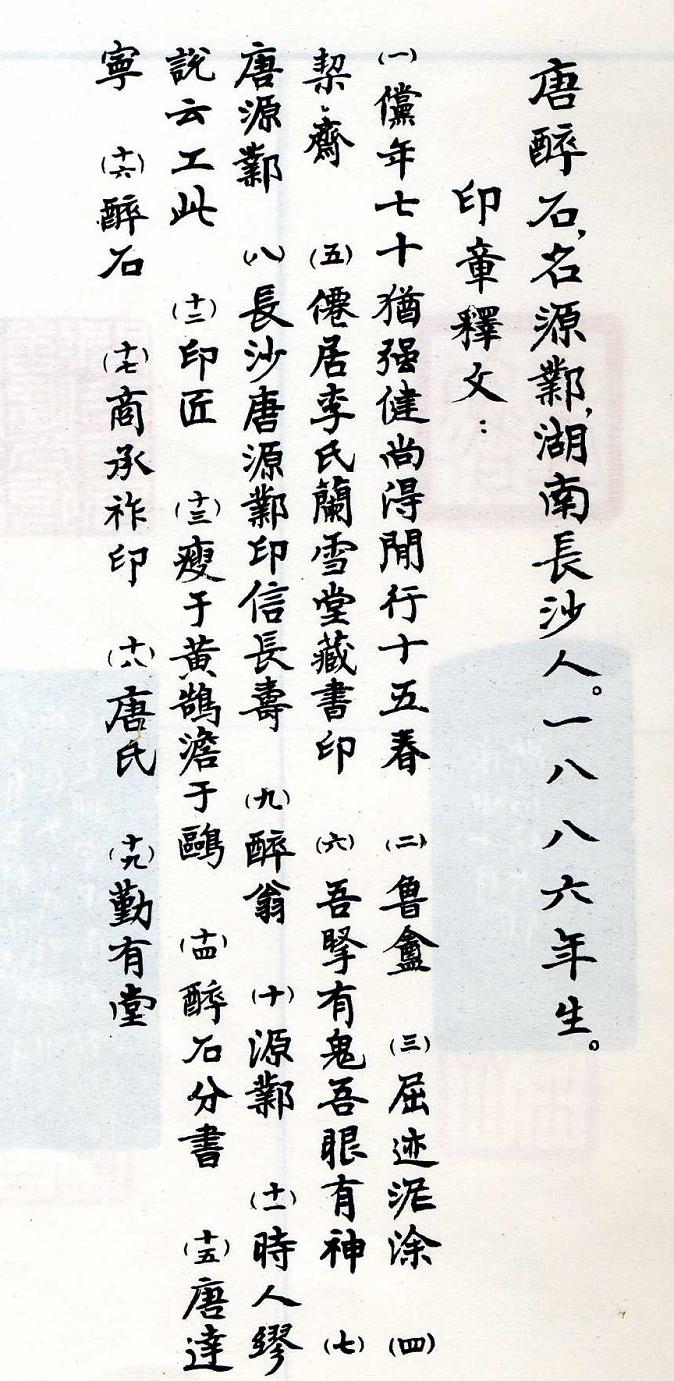 唐醉石，名源鄴，湖南長沙人。一八八六年生。
印章釋文：
㈠儻年七十猶强健尚得閒行十五春 ㈡魯盦 ㈢屈迹泥涂 ㈣
栔齋 ㈤僊居李氏蘭雪堂藏書印 ㈥吾掔有鬼吾眼有神 ㈦
唐源鄴 ㈧長沙唐源鄴印信長壽 ㈨醉翁 ㈩源鄴 (十一)時人繆
說云工此 (十二)印匠 (十三)瘦于黄鵠澹于鷗 (十四)醉石分書 (十五)唐達
寧 (十六)醉石 (十七)商承祚印 (十八)唐氏 (十九)勤有堂